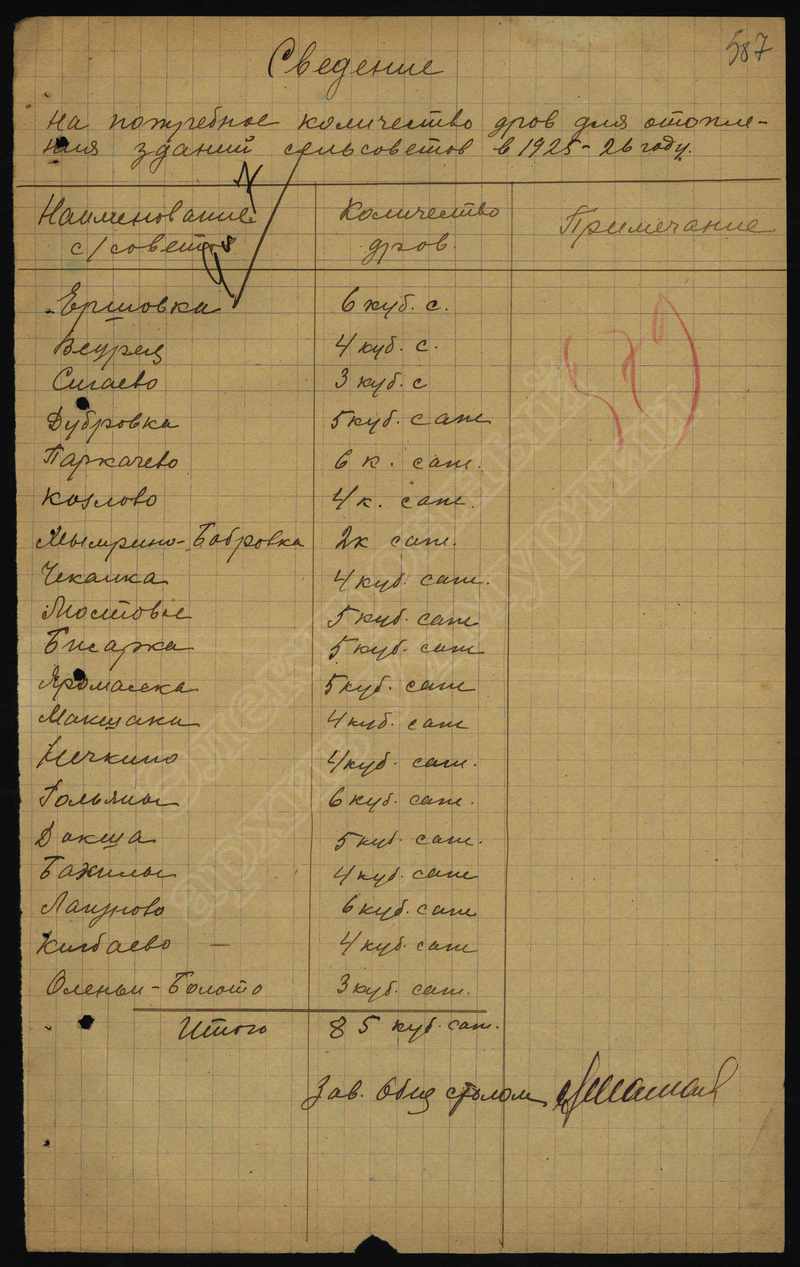 587
Сведение
на потребное количество дров для отопле-
ния зданий сельсоветов в 1925-26 году.
Наименование с/советов Количество дров. Примечание
Ершовка 6 куб. с.
4 куб. с.
Сигаево 3 куб. с
Дубровка 5 куб. саж
Паркачево 6 к. саж.
Козлово 4 к. саж.
Мымрино-Бобровка 2 к саж.
Чекалка 4 куб. саж.
Мостовое 5 куб. саж
Бисарка 5 куб. саж
Яромаска 5 куб. саж
Макшаки 4 куб. саж
Нечкино 4 куб. саж.
Гольяны 6 куб. саж.
Докша 5 куб. саж.
Бажилы 4 куб. саж
Лагуново 6 куб. саж
Кигбаево — 4 куб. саж
Оленьи-Болото 3 куб. саж.
Итого 85 куб. саж.
Зав. Общ столом